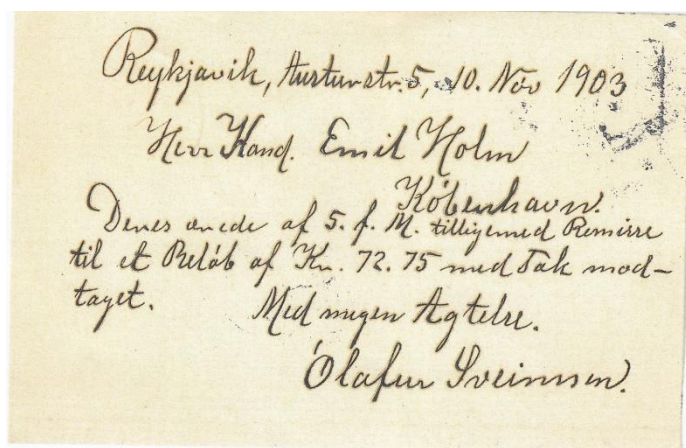 Reykjavik, Austurstr. 5, 10. Nov 1903
Herr Kand. Emil Holm
København.
Deres ærede af 5. f. M. tilligemed Remisse
til et Beløb af Kr. 72.75 med Tak mod-
taget.
Med megen Agtelse.
Ólafur Sveinsson.